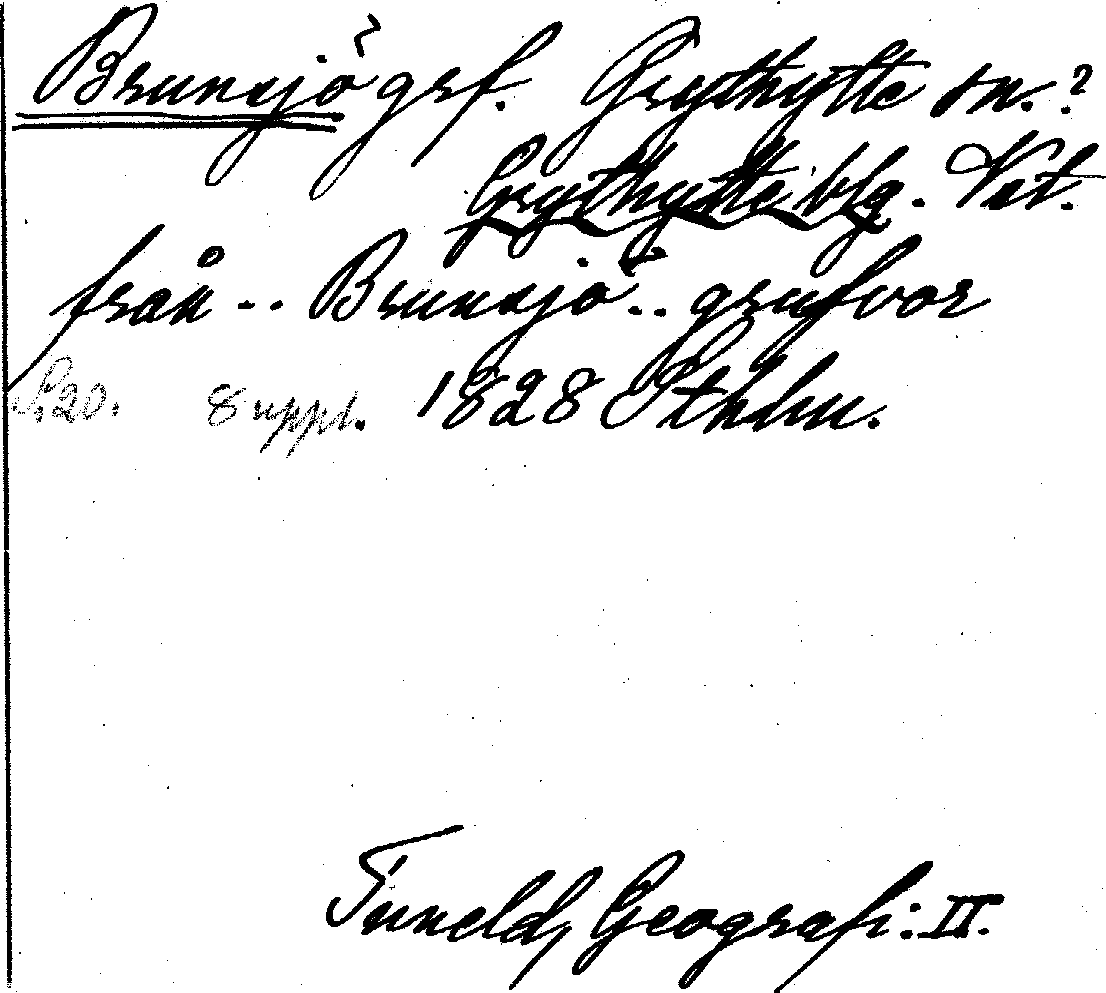 Brunsjö grf. Grythytte sn.?
Grythytte blg. Vst.
från .. Brunsjö .. grufvor
S. 20. 8 uppl. 1828 Sthlm.
Tuneld, Geografi: II.